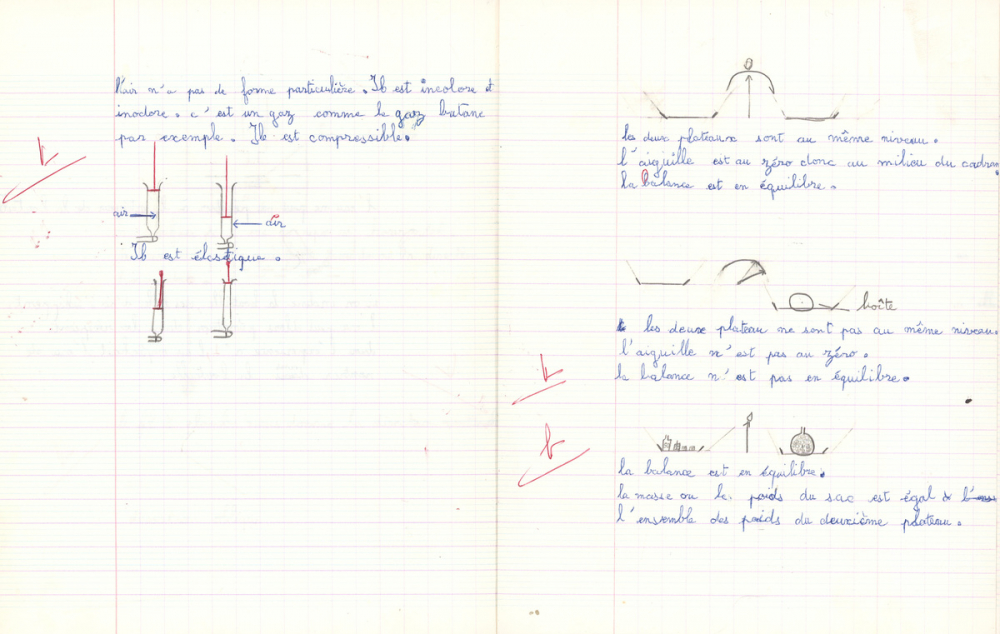 l'air n'a pas de forme particulière. Il est incolore et
inodore. c'est un gaz comme le gaz butane
par exemple. Il est compressible.
air
air
Il est élastique.
les deux plateaux sont au même niveau.
l'aiguille est au zéro donc au milieu du cadran,
la balance est en équilibre.
boîte
les deux plateau ne sont pas au même niveau.
l'aiguille n'est pas au zéro.
la balance n'est pas en équilibre.
la balance est en équilibre.
la masse ou le poids du sac est égal à
l'ensemble des poids du deuxième plateau.